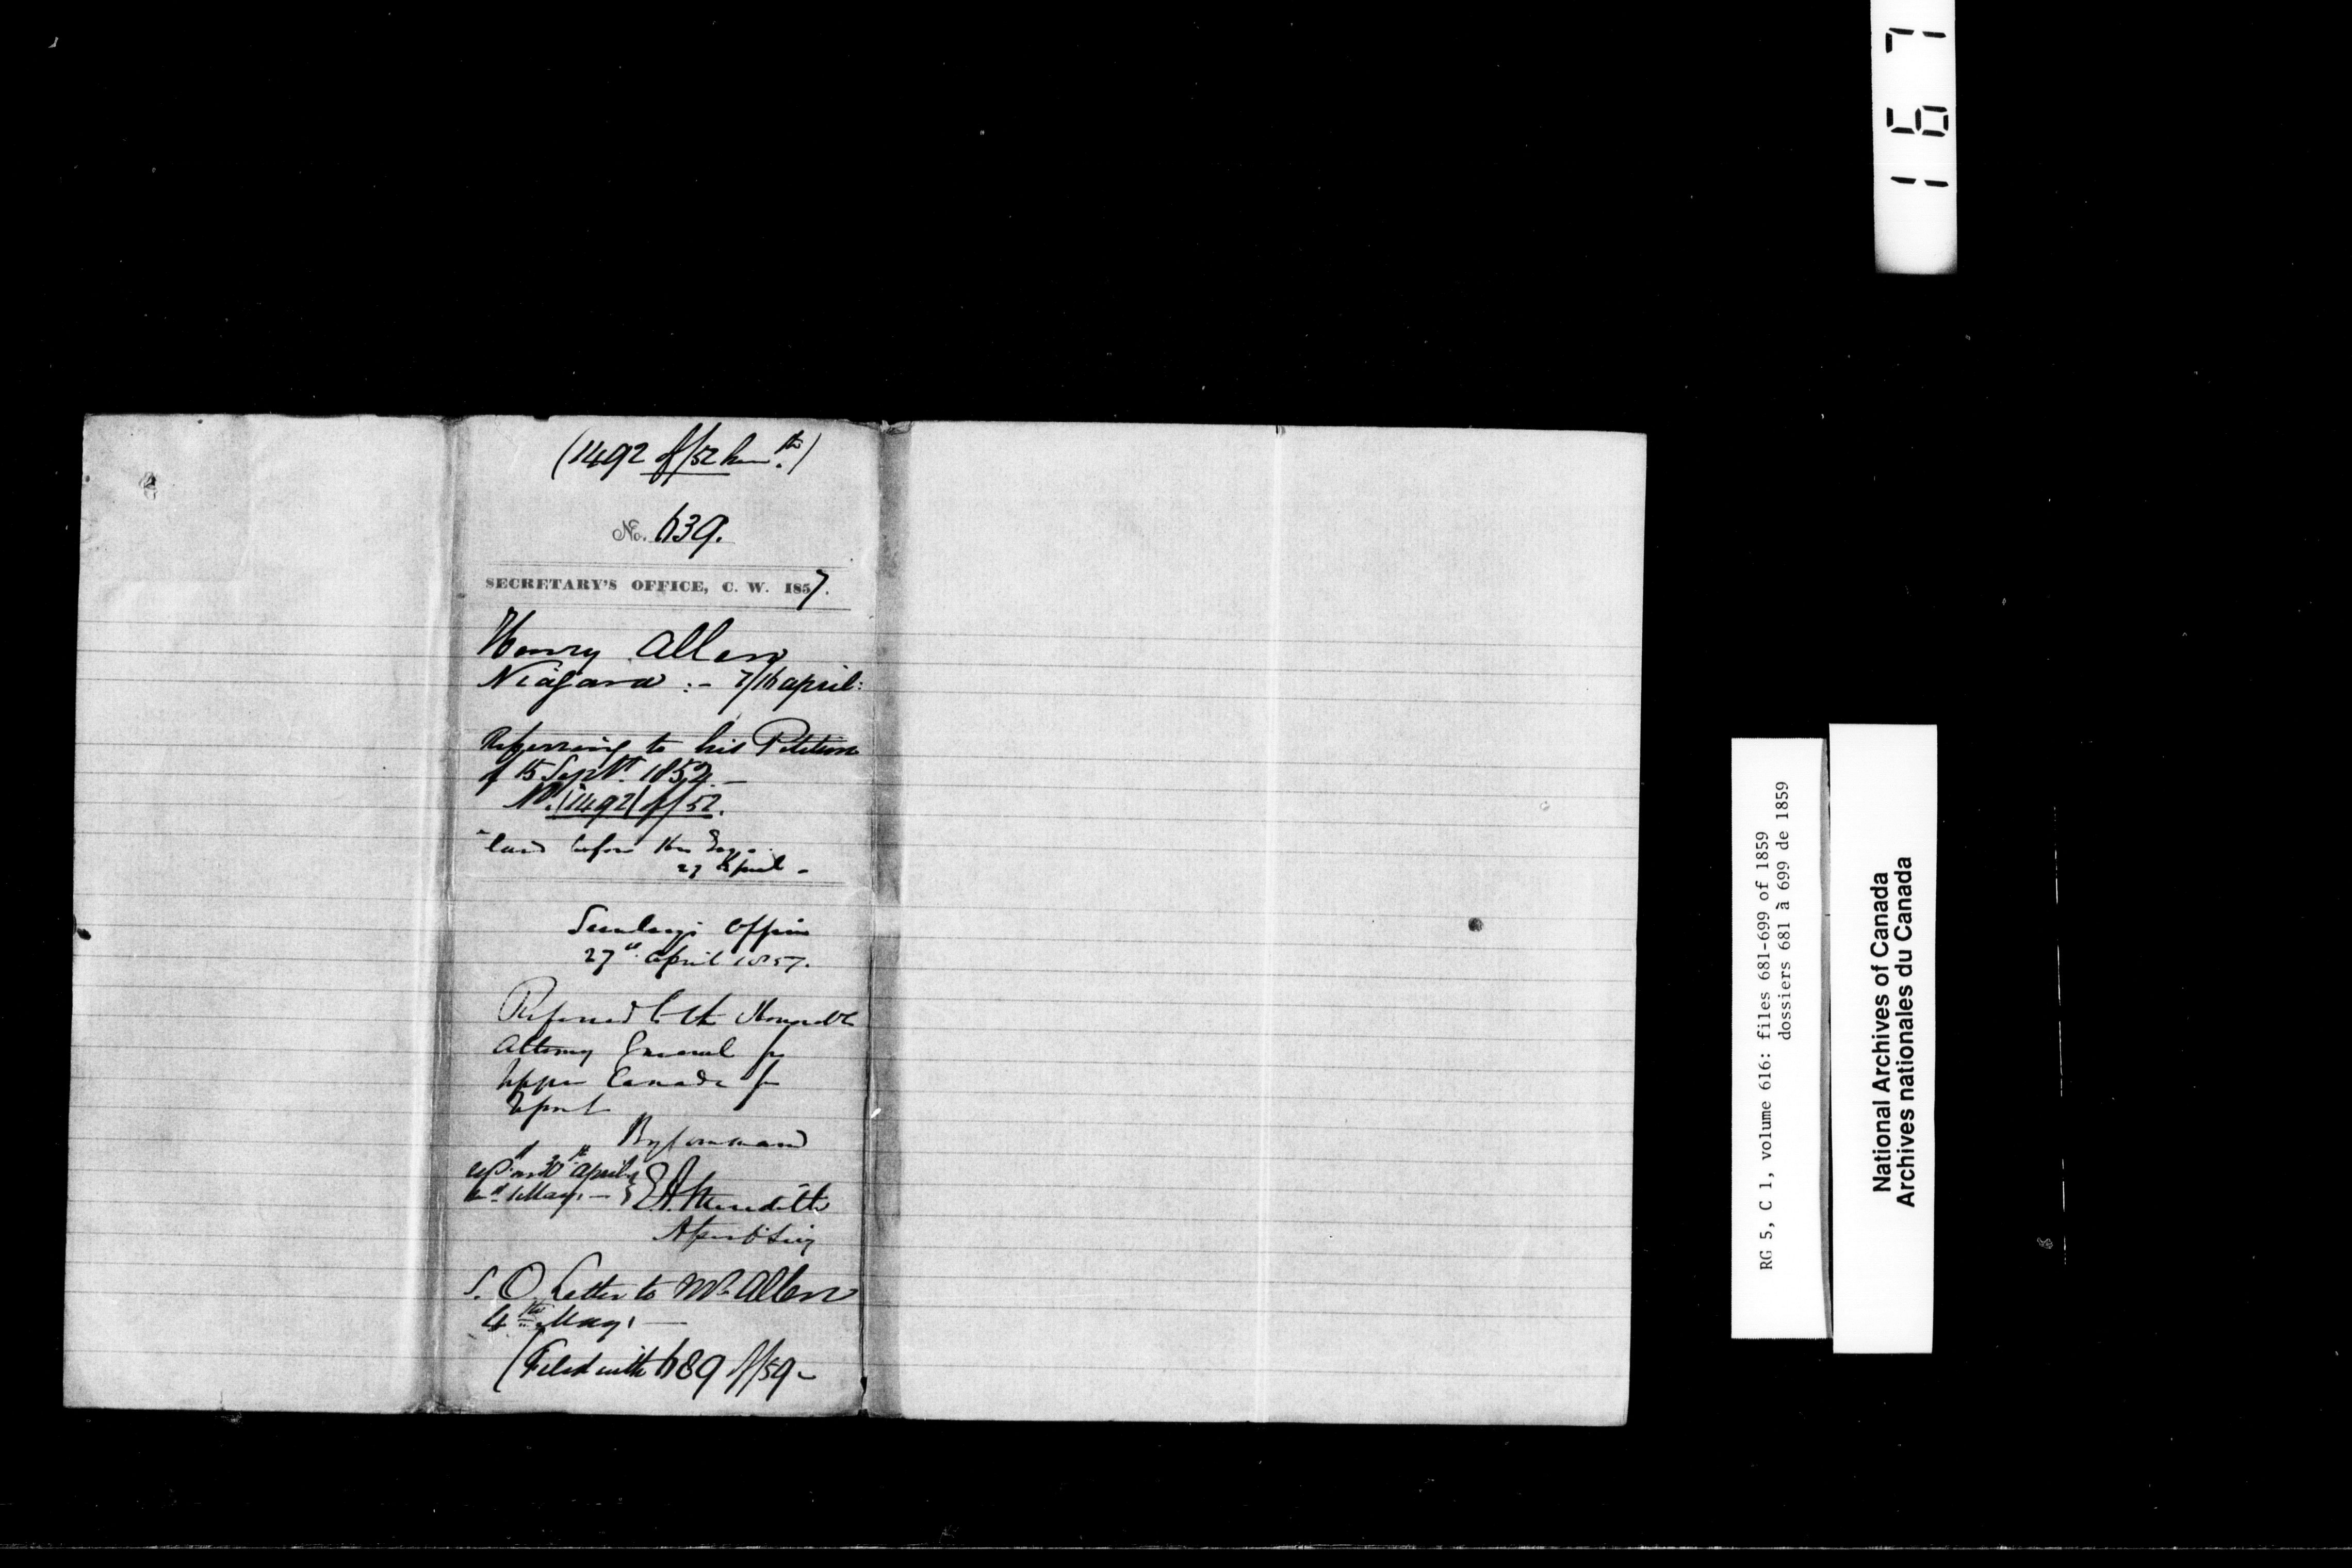 (1492 of/52 herewth.)
No. 639.
SECRETARY'S OFFICE, C. W. 1857.
Henry Allen
Niagara :- 7/16 april:
Referring to his Petition
of 15 Septr. 1852 -
No. (1492) of/52.
Laid before His Exy.
27 April -
Secretary's Office
27th. April 1857.
Referred to the Honorable
Attorney General for
Upper Canada for
Report
By Command
30th April
1 May. -
E. A. Meredith
Assist Secy
S. O. Letter to Mr. Allen
4th May. -
(Filed with 689 of/59 -
167
RG 5, C 1, volume 616: files 681-699 of 1859
dossiers 681 à 699 de 1859
National Archives of Canada
Archives nationales du Canada